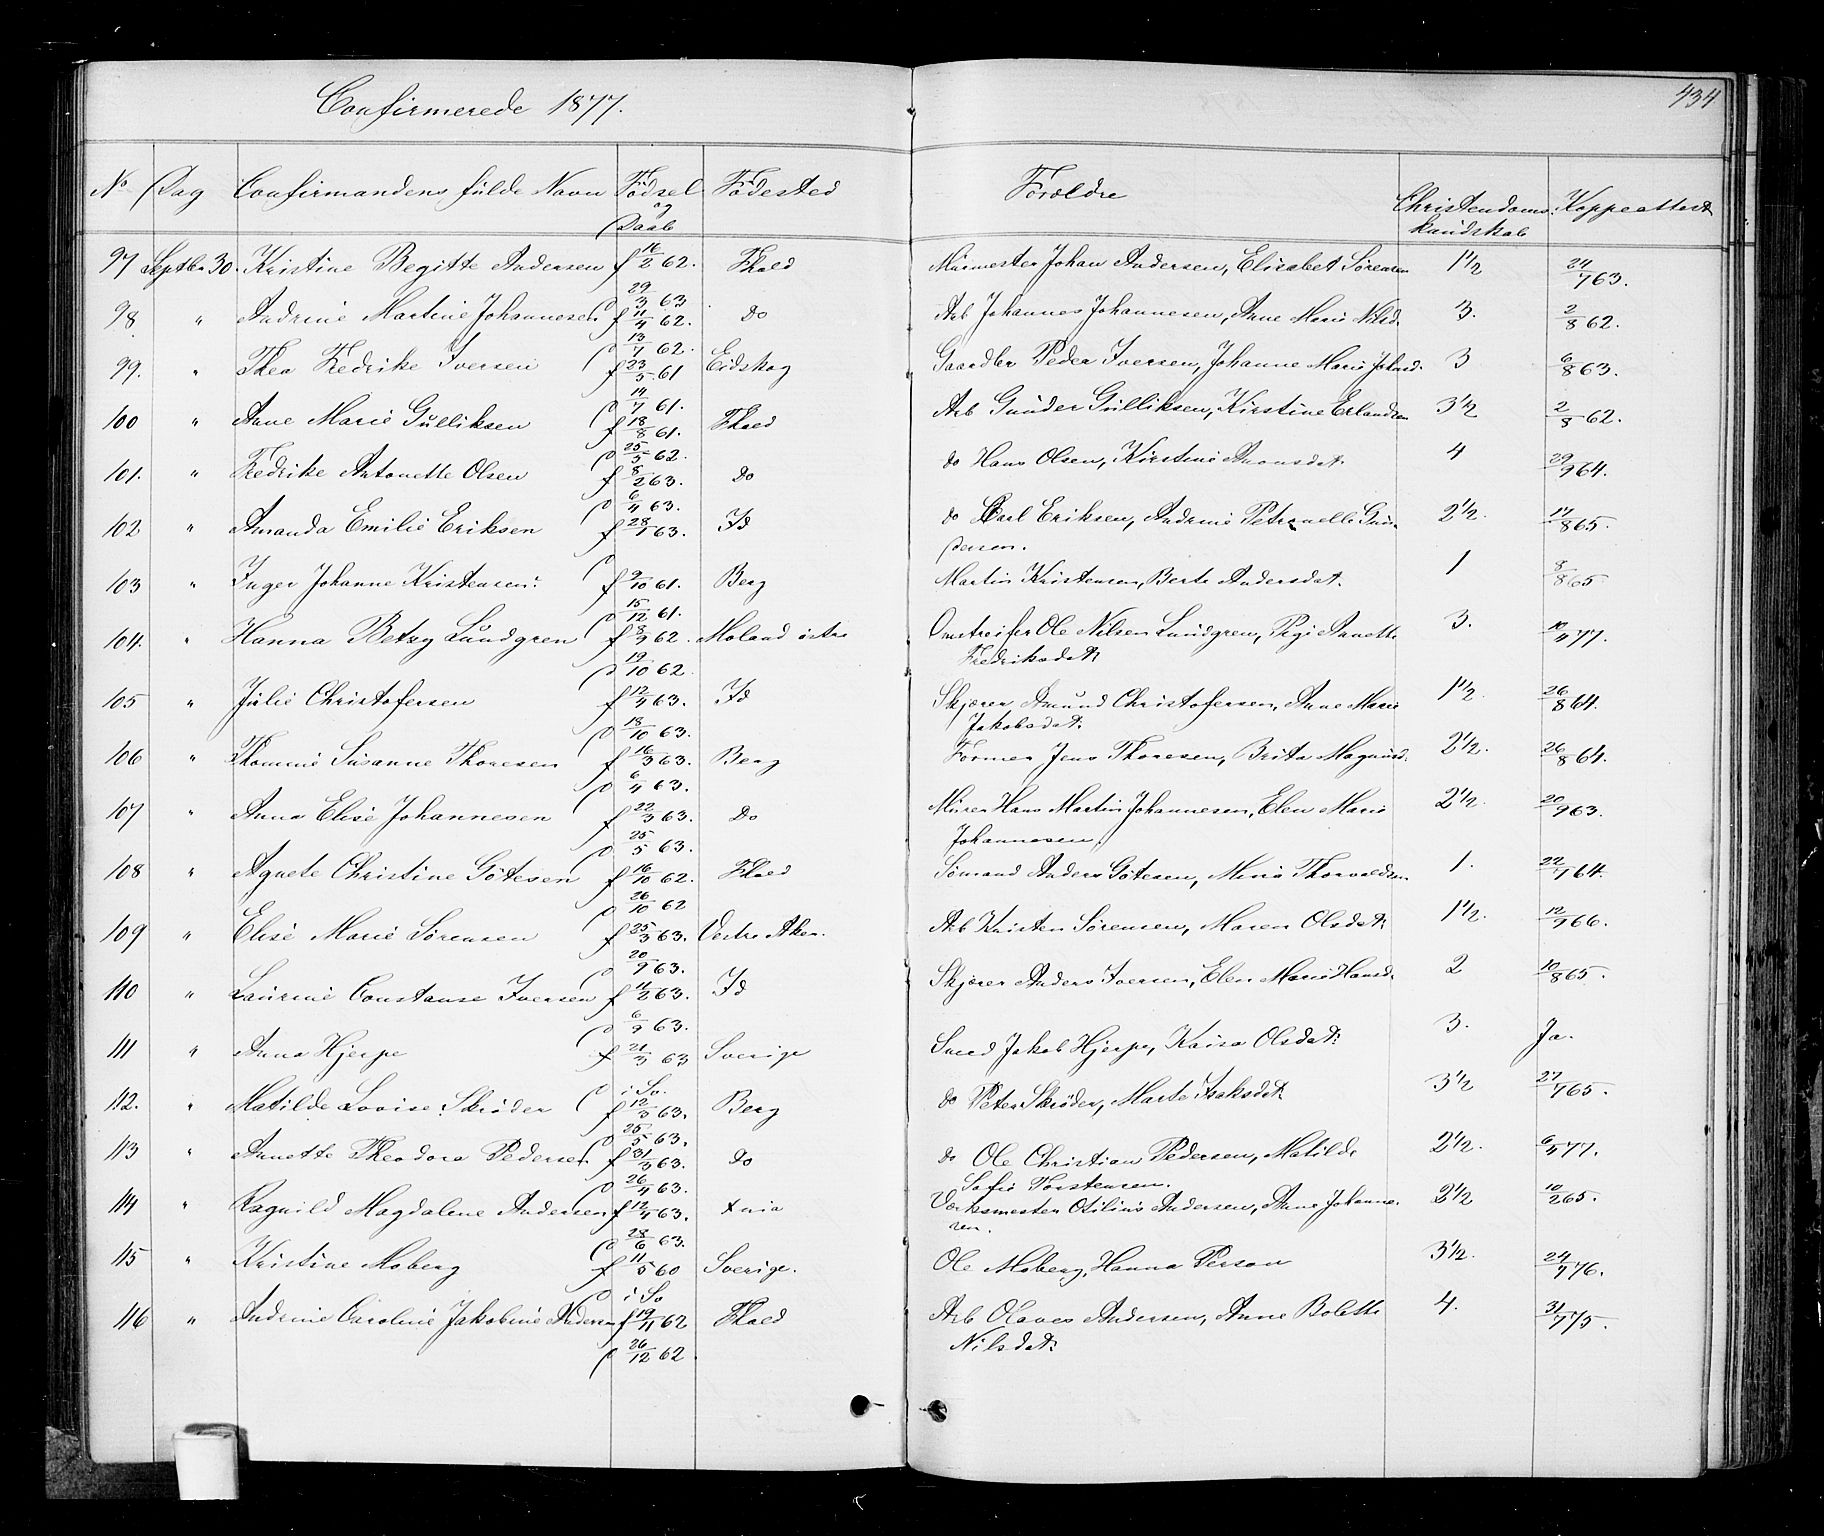 Confirmerede 1877.
434
No Dag Confirmandens fulde Navn Fødsel og Daab Fødested Forældre Christendoms kundskab Koppeattest
97 Septbr 30. Kristine Begitte Andersen f 16/2 62. Fhald Murmester Johan Andersen, Elisabet Sørensen 1 1/2 24/7 63.
D 29/3 63
98 " Andrine Martine Johannesen f 11/4 62. Do Arb Johannes Johannesen, Anne Marie Nilsd. 3. 2/8 62.
D 13/7 62.
99. " Thea Fredrike Iversen f 23/5 61 Eidskog Gaardbr Peder Iversen, Johanne Marie Johnsd. 3 6/8 63.
D 14/7 61.
100 " Anne Marie Gulliksen f 18/8 61. Fhald Arb Gunder Gulliksen, Kirstine Erlandsen 3 1/2 2/8 62.
D 25/5 62.
101. " Fredrike Antonette Olsen f 8/2 63. Do do Hans Olsen, Kirstine Aronsdat. 4 29/9 64.
D 6/4 63.
102 " Amanda Emilie Eriksen f 28/1 63. Id do Carl Eriksen, Andrine Petronelle Gundersen. 2 1/2. 17/8 65.
D
103 " Inger Johanne Kristensen. f 9/10 61. Berg Martin Kristensen, Berte Andersdat. 1 8/8 65
D 15/12 61.
104. " Hanna Betzy Lundgren f 8/9 62. Moland østre Omstreifer Ole Nilsen Lundgren, Pegi Annette 3. 10/4 77.
D 19/10 62. Fredriksdat
105 " Julie Christofersen f 12/4 63. Id Skjærer Amund Christofersen, Anne Marie 1 1/2. 26/8 64.
D 18/10 63. Jakobsdat.
106 " Thomine Susanne Thoresen f 16/3 63. Berg Former Jens Thoresen, Brita Magnusd. 2 1/2. 26/8 64.
D 6/4 63.
107 " Anna Elise Johannesen f 22/3 63. Do Murer Hans Martin Johannesen, Elen Marie 2 1/2. 20/9 63.
D 25/5 63. Johannesen.
108 " Agnete Christine Gøtesen f 16/10 62. Fhald Sømand Anders Gøtesen, Mina Thorvaldsen 1. 22/7 64.
D 26/10 62
109 " Elise Marie Sørensen f 25/3 63. Vestre Aker. Arb Kristen Sørensen, Maren Olsdat. 1 1/2. 12/9 66.
D 20/9 63.
110 " Laurine Constanse Iversen f 11/2 63. Id Skjærer Anders Iversen, Elen Marie Hansd. 2 10/8 65.
D 6/9 63.
111 " Anna Hjerpe f 21/3 63 Sverige Smed Jakob Hjerpe, Kaisa Olsdat. 3. Ja.
D i Sv.
112. " Matilde Lovise Skrøder f 12/3 63. Berg do Peter Skrøder, Marte Isaksdat. 3 1/2 27/7 65.
D 25/5 63.
113 " Annette Theodora Pedersen f 31/3 63. Do do Ole Christian Pedersen, Matilde 2 1/2. 6/4 77.
D 26/4 63. Sofie Torstensen.
114 " Ragnild Magdalene Andersen f 12/4 63. Xnia Værksmester Otilius Andersen, Anne Johannesen. 2 1/2 10/2 65.
D 28/6 63.
115 " Kristine Moberg f 11/5 60 Sverige. Ole Moberg, Hanna Person 3 1/2. 24/4 76.
D i Sv
116 " Andrine Caroline Jakobine Andersen f 19/11 62 Fhald Arb Olaves Andersen, Anne Bolette 4. 31/7 75.
D 26/12 62. Nilsdat.